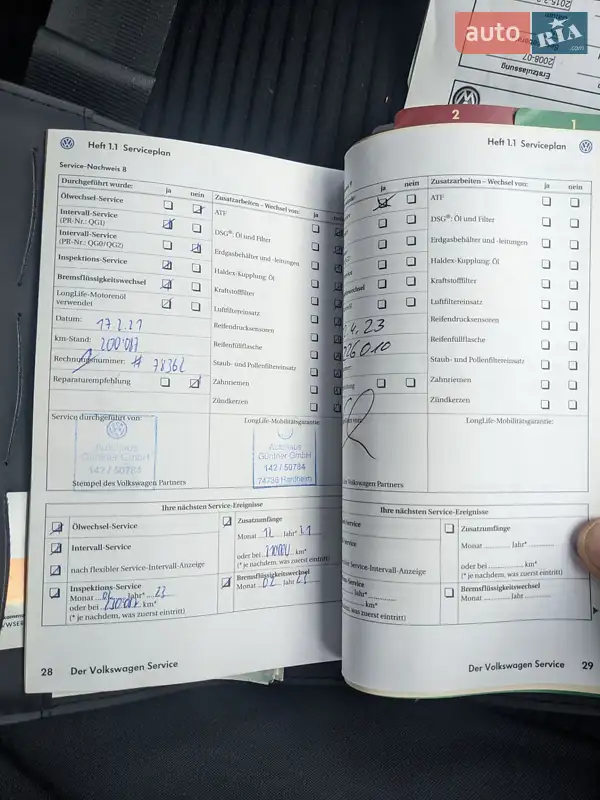 auto RIA .com
2015-
2008-07
Erstzulassung
2
1
Heft 1.1 Serviceplan
Service-Nachweis B
Durchgeführt wurde: ja nein
Ölwechsel-Service
Intervall-Service
(PR-Nr.: QG1)
Intervall-Service
(PR-Nr.: QG0/QG2)
Inspektions-Service
Bremsflüssigkeitswechsel
LongLife-Motorenöl
verwendet
Datum: 17.2.21
km-Stand: 200'017
Rechnungsnummer: # 78362
Reparaturempfehlung
Zusatzarbeiten – Wechsel von: ja
ATF
DSG®: Öl und Filter
Erdgasbehälter und -leitungen
Haldex-Kupplung: Öl
Kraftstofffilter
Luftfiltereinsatz
Reifendrucksensoren
Reifenfüllflasche
Staub- und Pollenfiltereinsatz
Zahnriemen
Zündkerzen
Service durchgeführt von:
Autohaus
Günther GmbH
142 / 50784
Stempel des Volkswagen Partners
LongLife-Mobilitätsgarantie:
Autohaus
Günther GmbH
142 / 50784
74736 Hardheim
Ihre nächsten Service-Ereignisse
Ölwechsel-Service
Intervall-Service
nach flexibler Service-Intervall-Anzeige
Inspektions-Service
Monat Jahr* 23
oder bei km*
(* je nachdem, was zuerst eintritt)
Zusatzumfänge
Monat 12 Jahr* 21
oder bei km*
(* je nachdem, was zuerst eintritt)
Bremsflüssigkeitswechsel
Monat 02 Jahr 23
28 Der Volkswagen Service
Heft 1.1 Serviceplan
ja nein
Zusatzarbeiten – Wechsel von: ja nein
ATF
DSG®: Öl und Filter
Erdgasbehälter und -leitungen
Haldex-Kupplung: Öl
Kraftstofffilter
Luftfiltereinsatz
Reifendrucksensoren
Reifenfüllflasche
Staub- und Pollenfiltereinsatz
Zahnriemen
Zündkerzen
4.23
26010
LongLife-Mobilitätsgarantie:
des Volkswagen Partners
Ihre nächsten Service-Ereignisse
Service
Service
Service-Intervall-Anzeige
Service
Jahr*
km*
was zuerst eintritt)
Zusatzumfänge
Monat Jahr*
oder bei km*
(* je nachdem, was zuerst eintritt)
Bremsflüssigkeitswechsel
Monat Jahr
Der Volkswagen Service 29